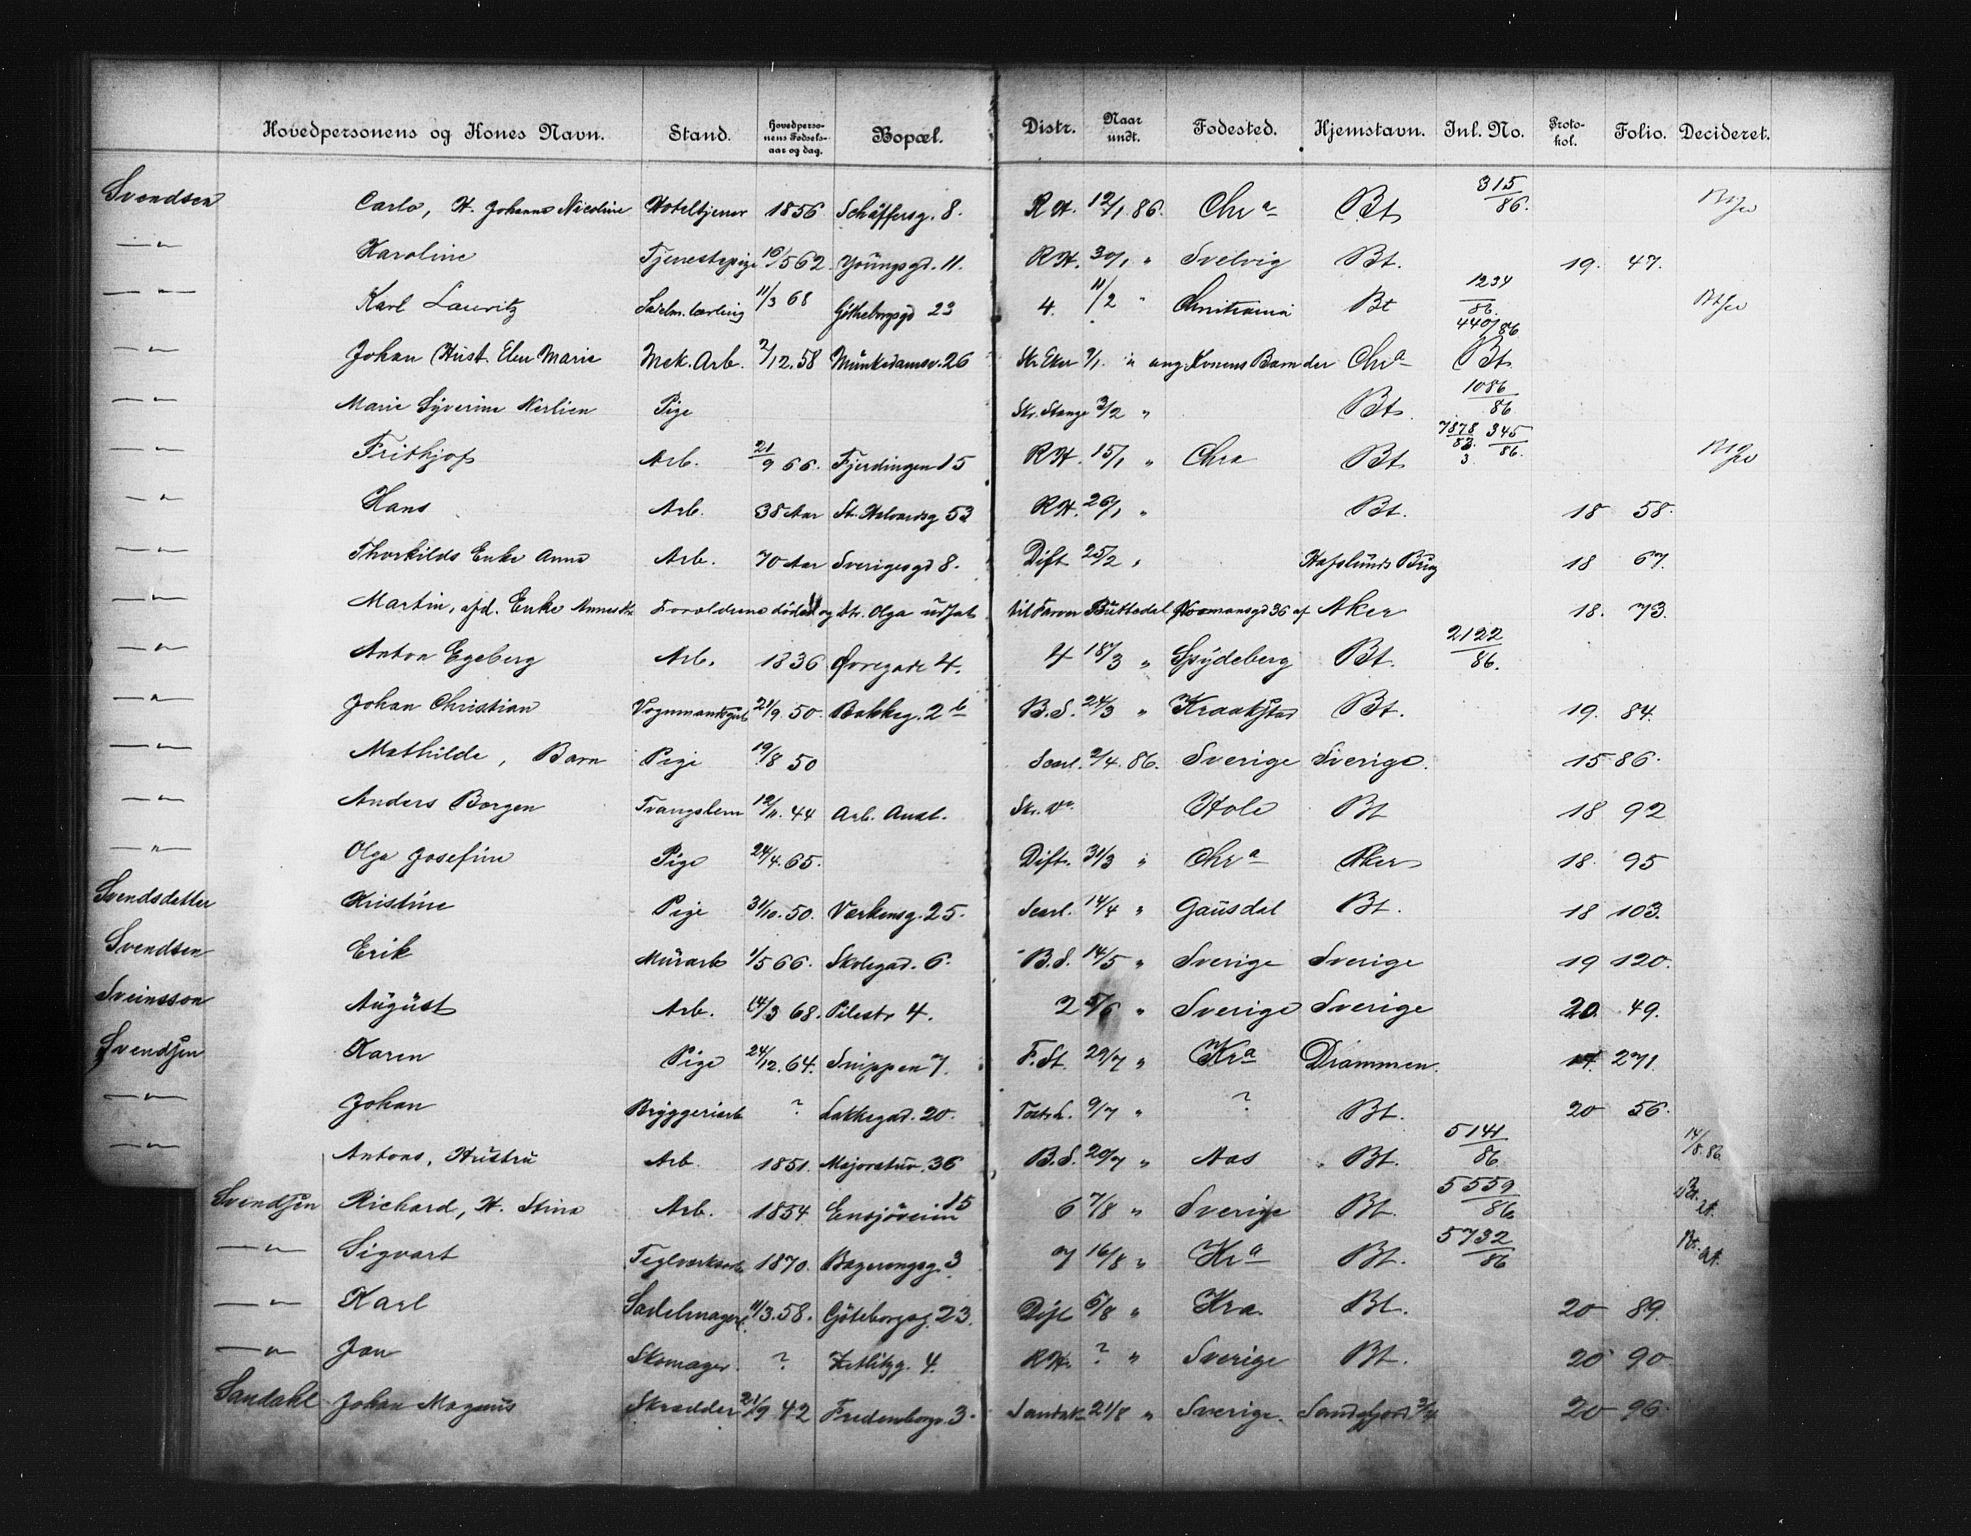 Hovedpersonens og Kones Navn. Stand. Hovedpersonens Fødselsaar og dag. Bopæl. Distr. Naar undt. Fødested. Hjemstavn. Inl. No. Protokol. Folio. Decideret.
Svendsen Carlo, H. Johanna Nicoline Hoteltjener 1856 Schäffersg. 8. R.H. 12/1 86. Chr a Bt 315/86.
—"— Karoline Tjenestepige 16/5 62. Youngsgd. 11. R.H. 30/1 " Svelvig Bt. 19. 47.
—"— Karl Lauritz Sadelm. lærling 11/3 68 Götheborgsgd 23 4. 11/2 " Christiania Bt 1234/86.
—"— Johan (Hust. Elen Marie Mek. Arb. 2/12. 58 Munkedamsv. 26 Skr. Eker 7/1. " ang. Konens Barn der Chr a Bt. 440/86
—"— Marie Syverine Nerlien Pige Skr. Stange 3/2 " Bt. 1086/86
—"— Frithjof Arb. 21/9 66. Fjerdingen 15 R.H. 15/1 " Chra Bt 7878/83. 345/86.
—"— Hans Arb. 38 Aar St. Halvardsg 53 R.H. 26/1 " Bt. 18 58.
—"— Thorkilds Enke Anna Arb. 70 Aar Sverigesgd 8. Dift 25/2 " Hafslunds Brug 18 67.
—"— Martin, afd. Enke Forældrene døde og dtr. Olga udsat til Farver Buttedal Normansgd 36 af Aker 18. 73.
—"— Anton Egeberg Arb. 1836 Øvregade 4. 4 18/3 " Spydeberg Bt. 2122/86.
—"— Johan Christian 21/9 50. Bakkeg. 2 b B.S. 24/3 " Kraakstad Bt. 19. 84.
—"— Mathilde, Barn Pige 19/8 50 Scarl. 2/4. 86. Sverige Sverige. 15 86.
—"— Anders Borgen Tvangslem 12/11. 44 Arb. Anst. Hole Bt 18 92
—"— Olga Josefine Pige 24/4. 65. Dift. 31/3 " Chr a Aker 18. 95
Svendsdatter Kristine Pige 31/10. 50. Værkensg. 25. Scarl. 14/4 " Gausdal Bt. 18 103.
Svendsen Erik Murarb 1/5 66. Skolegad. 6. B.S. 14/5 " Sverige Sverige 19 120.
Sveinsson August Arb. 14/3 68. Pilestr 4. 2 5/6 " Sverige Sverige 20. 49.
Svendsen Karen Pige 24/12. 64. Snippen 7. F.St. 29/7 " Kr a Drammen. 17. 271.
—"— Johan Bryggeriarb ? Lakkegad. 20. 9/7 " ? Bt. 20 56.
—"— Antons, Hustru Arb. 1851. Majorstuv. 36 B.S. 20/7 " Aas Bt. 5141/86 14/8. 86.
Svendsen Richard, H. Stina Arb. 1854. Ensjöveien 15 6 7/8 " Sverige Bt. 5559/86 Bt.
—"— Sigvart Teglverksarb 1870. 7 16/8 " Kr a Bt. 5732/86 Bt.
—"— Karl Sadelmagerl. 11/3. 58. Göteborgsg. 23. Dift 5/8 " Kra. Bt. 20 89.
—"— Jan Skomager. ? Zetlitzg. 4. R.H. ? " Sverige Bt. 20 90.
Sandahl Johan Magnus Skrædder 21/9 42 Fredensborgv. 3. 21/8 " Sverige. Sandefjord 3/4 20 96.